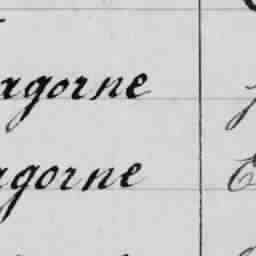 agorne
agorne